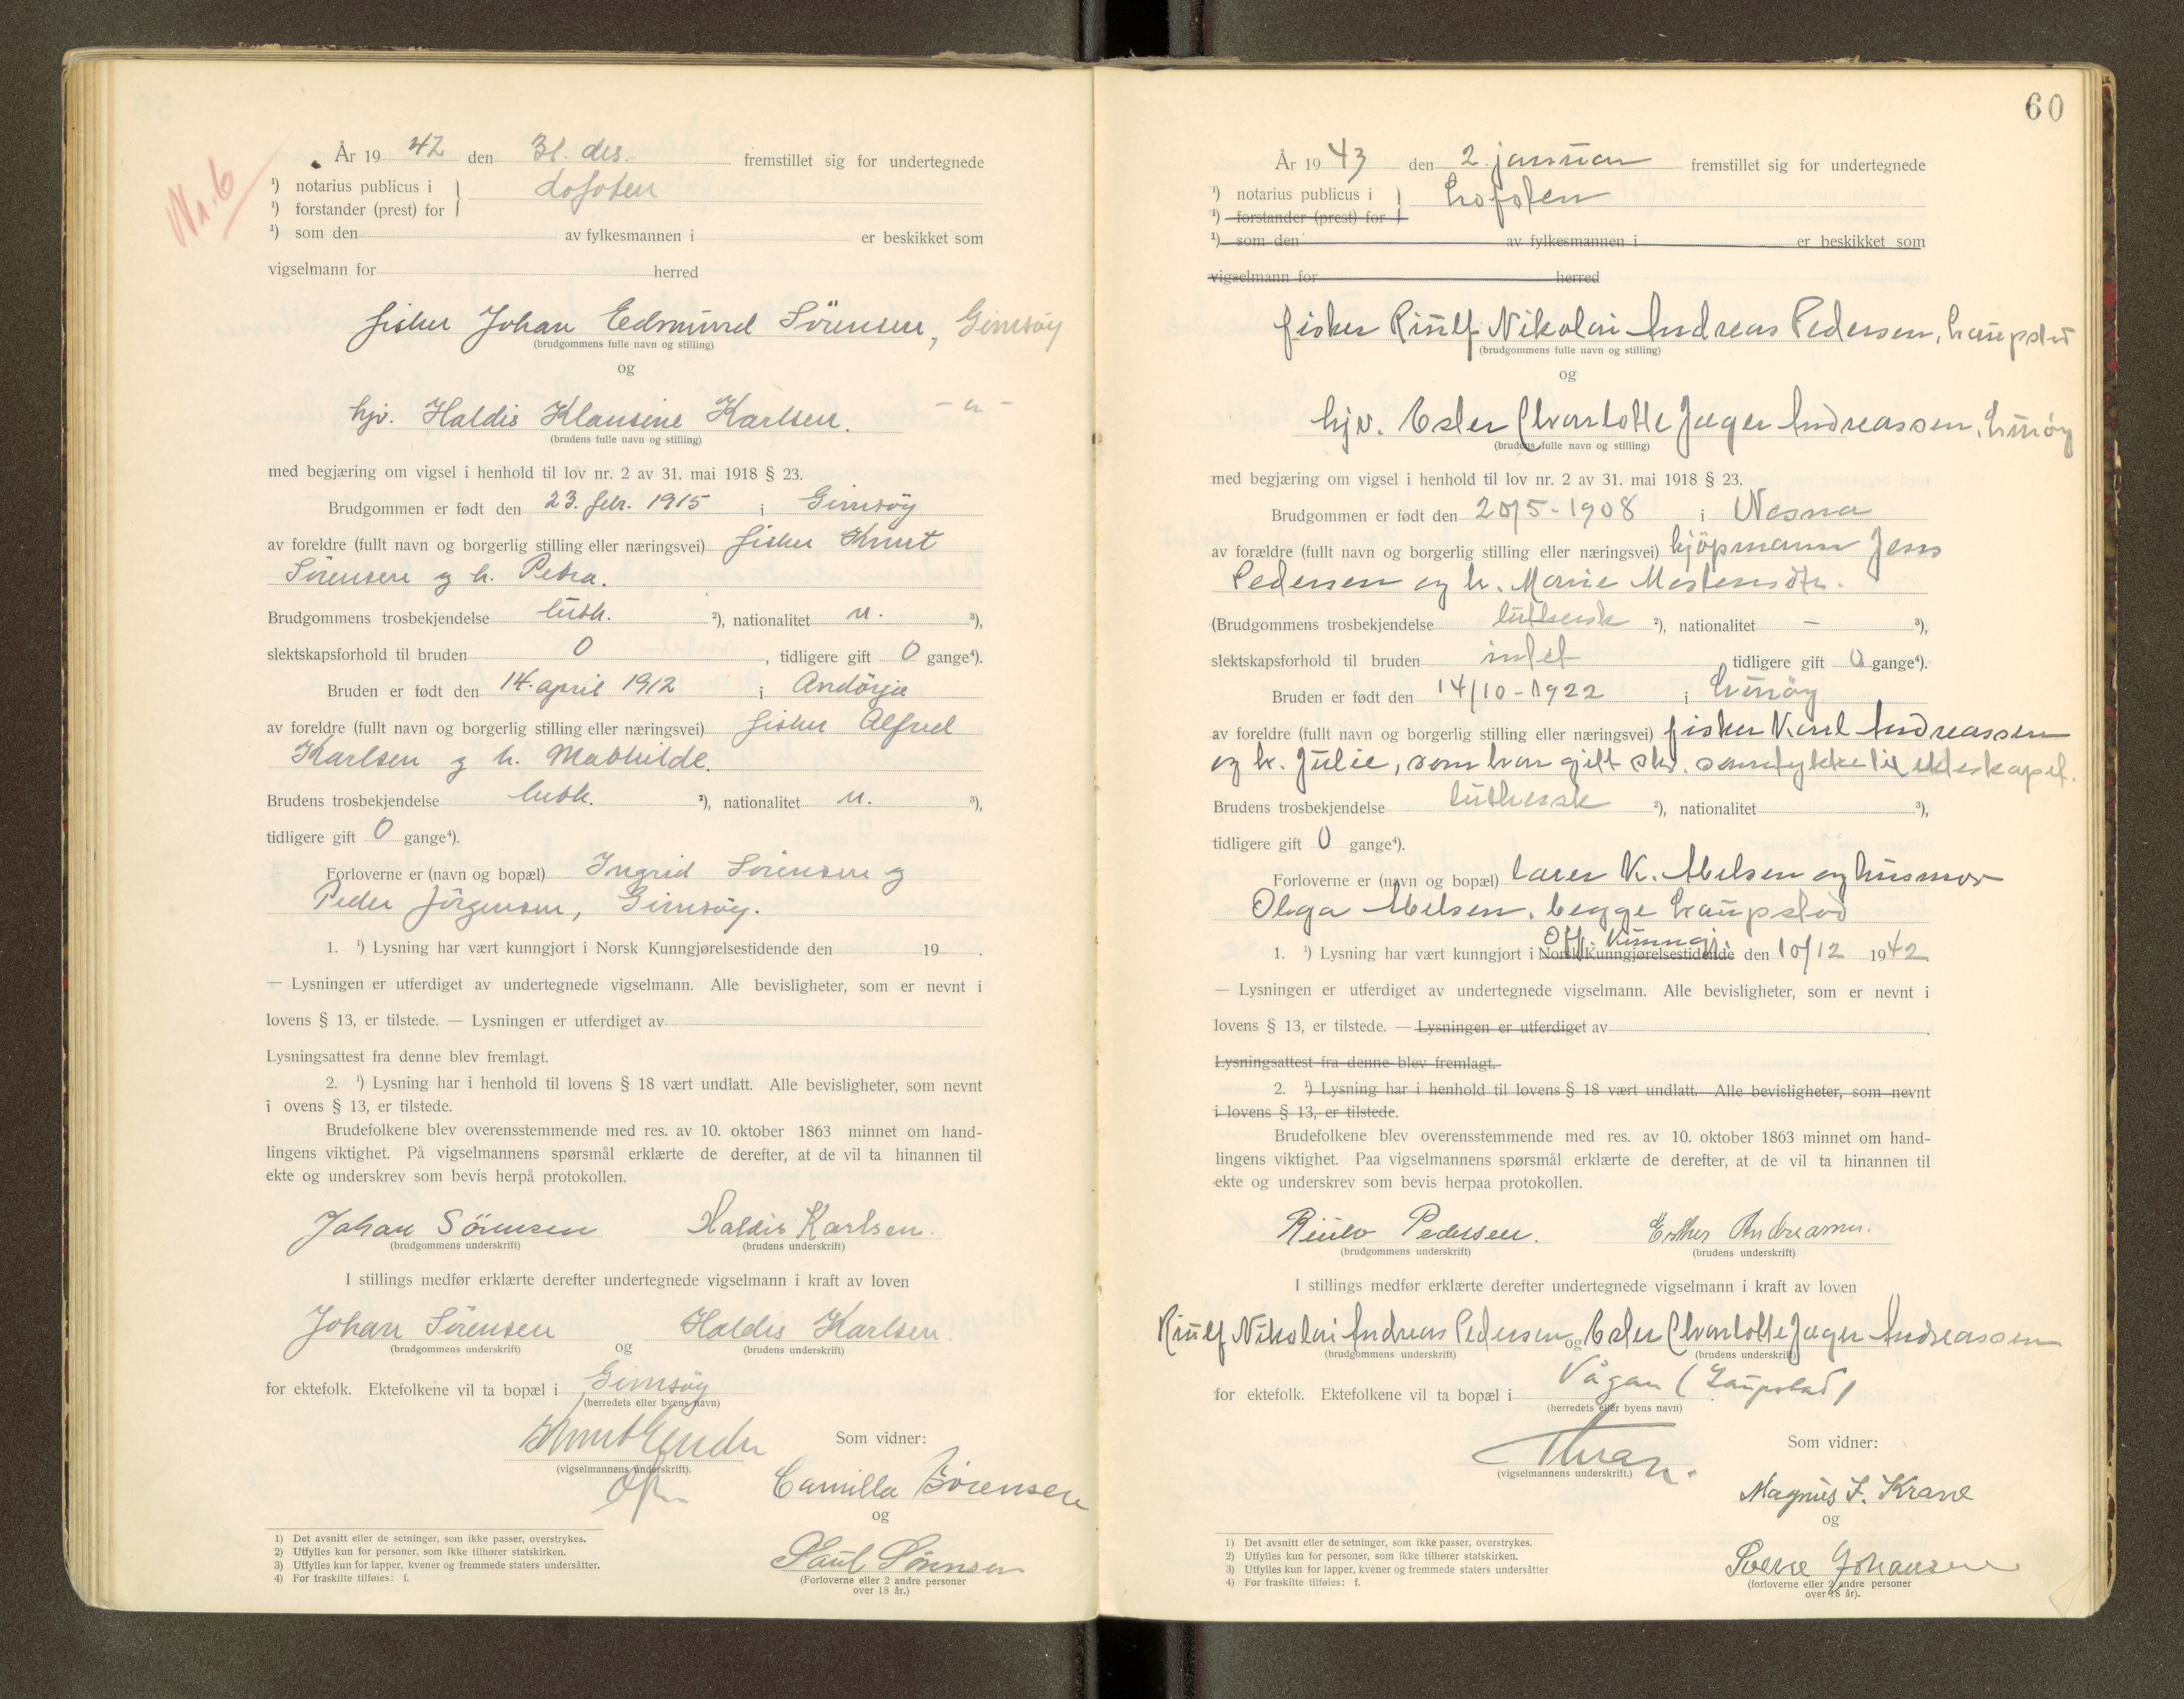 Nr. 6
År 1942 den 31. des. fremstillet sig for undertegnede
¹) notarius publicus i } Lofoten
¹) forstander (prest) for
¹) som den av fylkesmannen i er beskikket som
vigselmann for herred
fisker Johan Edmund Sörensen, Gimsöy
(brudgommens fulle navn og stilling)
og
hjv. Haldis Klausine Karlsen. - " -
(brudens fulle navn og stilling)
med begjæring om vigsel i henhold til lov nr. 2 av 31. mai 1918 § 23.
Brudgommen er født den 23. febr. 1915 i Gimsöy
av foreldre (fullt navn og borgerlig stilling eller næringsvei) fisker Knut
Sörensen og h. Petra.
Brudgommens trosbekjendelse luth. ²), nationalitet n. ³),
slektskapsforhold til bruden 0, tidligere gift 0 gange⁴).
Bruden er født den 14. april 1912 i Andörja
av foreldre (fullt navn og borgerlig stilling eller næringsvei) fisker Alfred
Karlsen og h. Mathilde.
Brudens trosbekjendelse luth. ²), nationalitet n. ³),
tidligere gift 0 gange⁴).
Forloverne er (navn og bopæl) Ingrid Sörensen og
Peder Jörgensen, Gimsöy.
1. ¹) Lysning har vært kunngjort i Norsk Kunngjørelsestidende den 19 .
— Lysningen er utferdiget av undertegnede vigselmann. Alle bevisligheter, som er nevnt i
lovens § 13, er tilstede. — Lysningen er utferdiget av
Lysningsattest fra denne blev fremlagt.
2. ¹) Lysning har i henhold til lovens § 18 vært undlatt. Alle bevisligheter, som nevnt
i ovens § 13, er tilstede.
Brudefolkene blev overensstemmende med res. av 10. oktober 1863 minnet om hand-
lingens viktighet. På vigselmannens spørsmål erklærte de derefter, at de vil ta hinannen til
ekte og underskrev som bevis herpå protokollen.
Johan Sörensen Haldis Karlsen.
(brudgommens underskrift) (brudens underskrift)
I stillings medfør erklærte derefter undertegnede vigselmann i kraft av loven
Johan Sörensen og Haldis Karlsen.
(brudgommens underskrift) (brudens underskrift)
for ektefolk. Ektefolkene vil ta bopæl i Gimsöy
(herredets eller byens navn)
Som vidner:
(vigselmannens underskrift).
Camilla Sörensen
og
Paul Sörensen
(Forloverne eller 2 andre personer
over 18 år.)
1) Det avsnitt eller de setninger, som ikke passer, overstrykes.
2) Utfylles kun for personer, som ikke tilhører statskirken.
3) Utfylles kun for lapper, kvener og fremmede staters undersåtter.
4) For fraskilte tilføies: f.
60
År 1943 den 2. januar fremstillet sig for undertegnede
¹) notarius publicus i } Lofoten
¹) forstander (prest) for
¹) som den av fylkesmannen i er beskikket som
vigselmann for herred
fisker Riulf Nikolai Andreas Pedersen, Laupstad
(brudgommens fulle navn og stilling)
og
hjv. Ester Charlotte Jæger Andreassen,
(brudens fulle navn og stilling)
med begjæring om vigsel i henhold til lov nr. 2 av 31. mai 1918 § 23.
Brudgommen er født den 20/5-1908 i Nesna
av forældre (fullt navn og borgerlig stilling eller næringsvei) kjöpmann Jens
Pedersen og h. Marie Mortensdtr.
(Brudgommens trosbekjendelse luthersk ²), nationalitet — ³),
slektskapsforhold til bruden intet tidligere gift 0 gange⁴).
Bruden er født den 14/10-1922 i
av foreldre (fullt navn og borgerlig stilling eller næringsvei) fisker Karl Andreassen
og h. Julie, som har gitt skr. samtykke til ekteskapet.
Brudens trosbekjendelse luthersk ²), nationalitet ³),
tidligere gift 0 gange⁴).
Forloverne er (navn og bopæl) lærer K. Abelsen og husmor
Olga Abelsen, begge Laupstad
Off. Kunngj.
1. ¹) Lysning har vært kunngjort i Norsk Kunngjørelsestidende den 10/12 1942
— Lysningen er utferdiget av undertegnede vigselmann. Alle bevisligheter, som er nevnt i
lovens § 13, er tilstede. — Lysningen er utferdiget av .
Lysningsattest fra denne blev fremlagt.
2. ¹) Lysning har i henhold til lovens § 18 vært undlatt. Alle bevisligheter, som nevnt
i lovens § 13, er tilstede.
Brudefolkene blev overensstemmende med res. av 10. oktober 1863 minnet om hand-
lingens viktighet. Paa vigselmannens spørsmål erklærte de derefter, at de vil ta hinannen til
ekte og underskrev som bevis herpaa protokollen.
Riulv Pedersen. Esther Andreassen.
(brudgommens underskrift) (brudens underskrift)
I stillings medfør erklærte derefter undertegnede vigselmann i kraft av loven
Riulf Nikolai Andreas Pedersen og Ester Charlotte Jæger Andreassen
(brudgommens underskrift) (brudens underskrift)
for ektefolk. Ektefolkene vil ta bopæl i Vågan (Laupstad)
(herredets eller byens navn)
Som vidner:
(vigselmannens underskrift.)
Magnus J. Krane
og
Sverre Johansen
(forloverne eller 2 andre personer
over 18 år).
1) Det avsnitt eller de setninger, som ikke passer, overstrykes.
2) Utfylles kun for personer, som ikke tilhører statskirken.
3) Utfylles kun for lapper, kvener og fremmede staters undersåtter
4) For fraskilte tilføies: f.